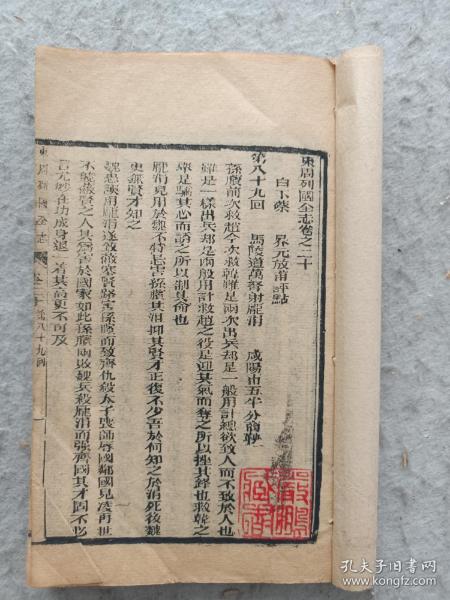 東周列國全志卷之二十
白下蔡 昇元放甫評點
第八十九回 馬陵道萬弩射龐涓 咸陽市五牛分商鞅
孫臏前次救趙今次救韓雖是兩次出兵却是一般用計總欲致人而不致於人也
雖是一樣出兵却是兩般用計救趙之役是迎其氣而奪之所以挫其鋒也救韓之
役是驕其心而誘之所以制其命也
龐涓見用於魏不特忌害孫臏其沮抑其賢才正復不少吾於何知之於涓死後魏
更無賢才知之
魏惠誤用龐涓遂致蔽塞賢路害孫臏而致齊仇殺太子喪師辱國鄰國見凌再世
不能蔽賢之人其為害於國家如此孫臏兩敗魏兵殺龐涓而强齊國其才固不必
言尤妙在功成身退一着其高更不可及
東周列國全志 卷二十 第八十九回 一
孔夫子旧书网